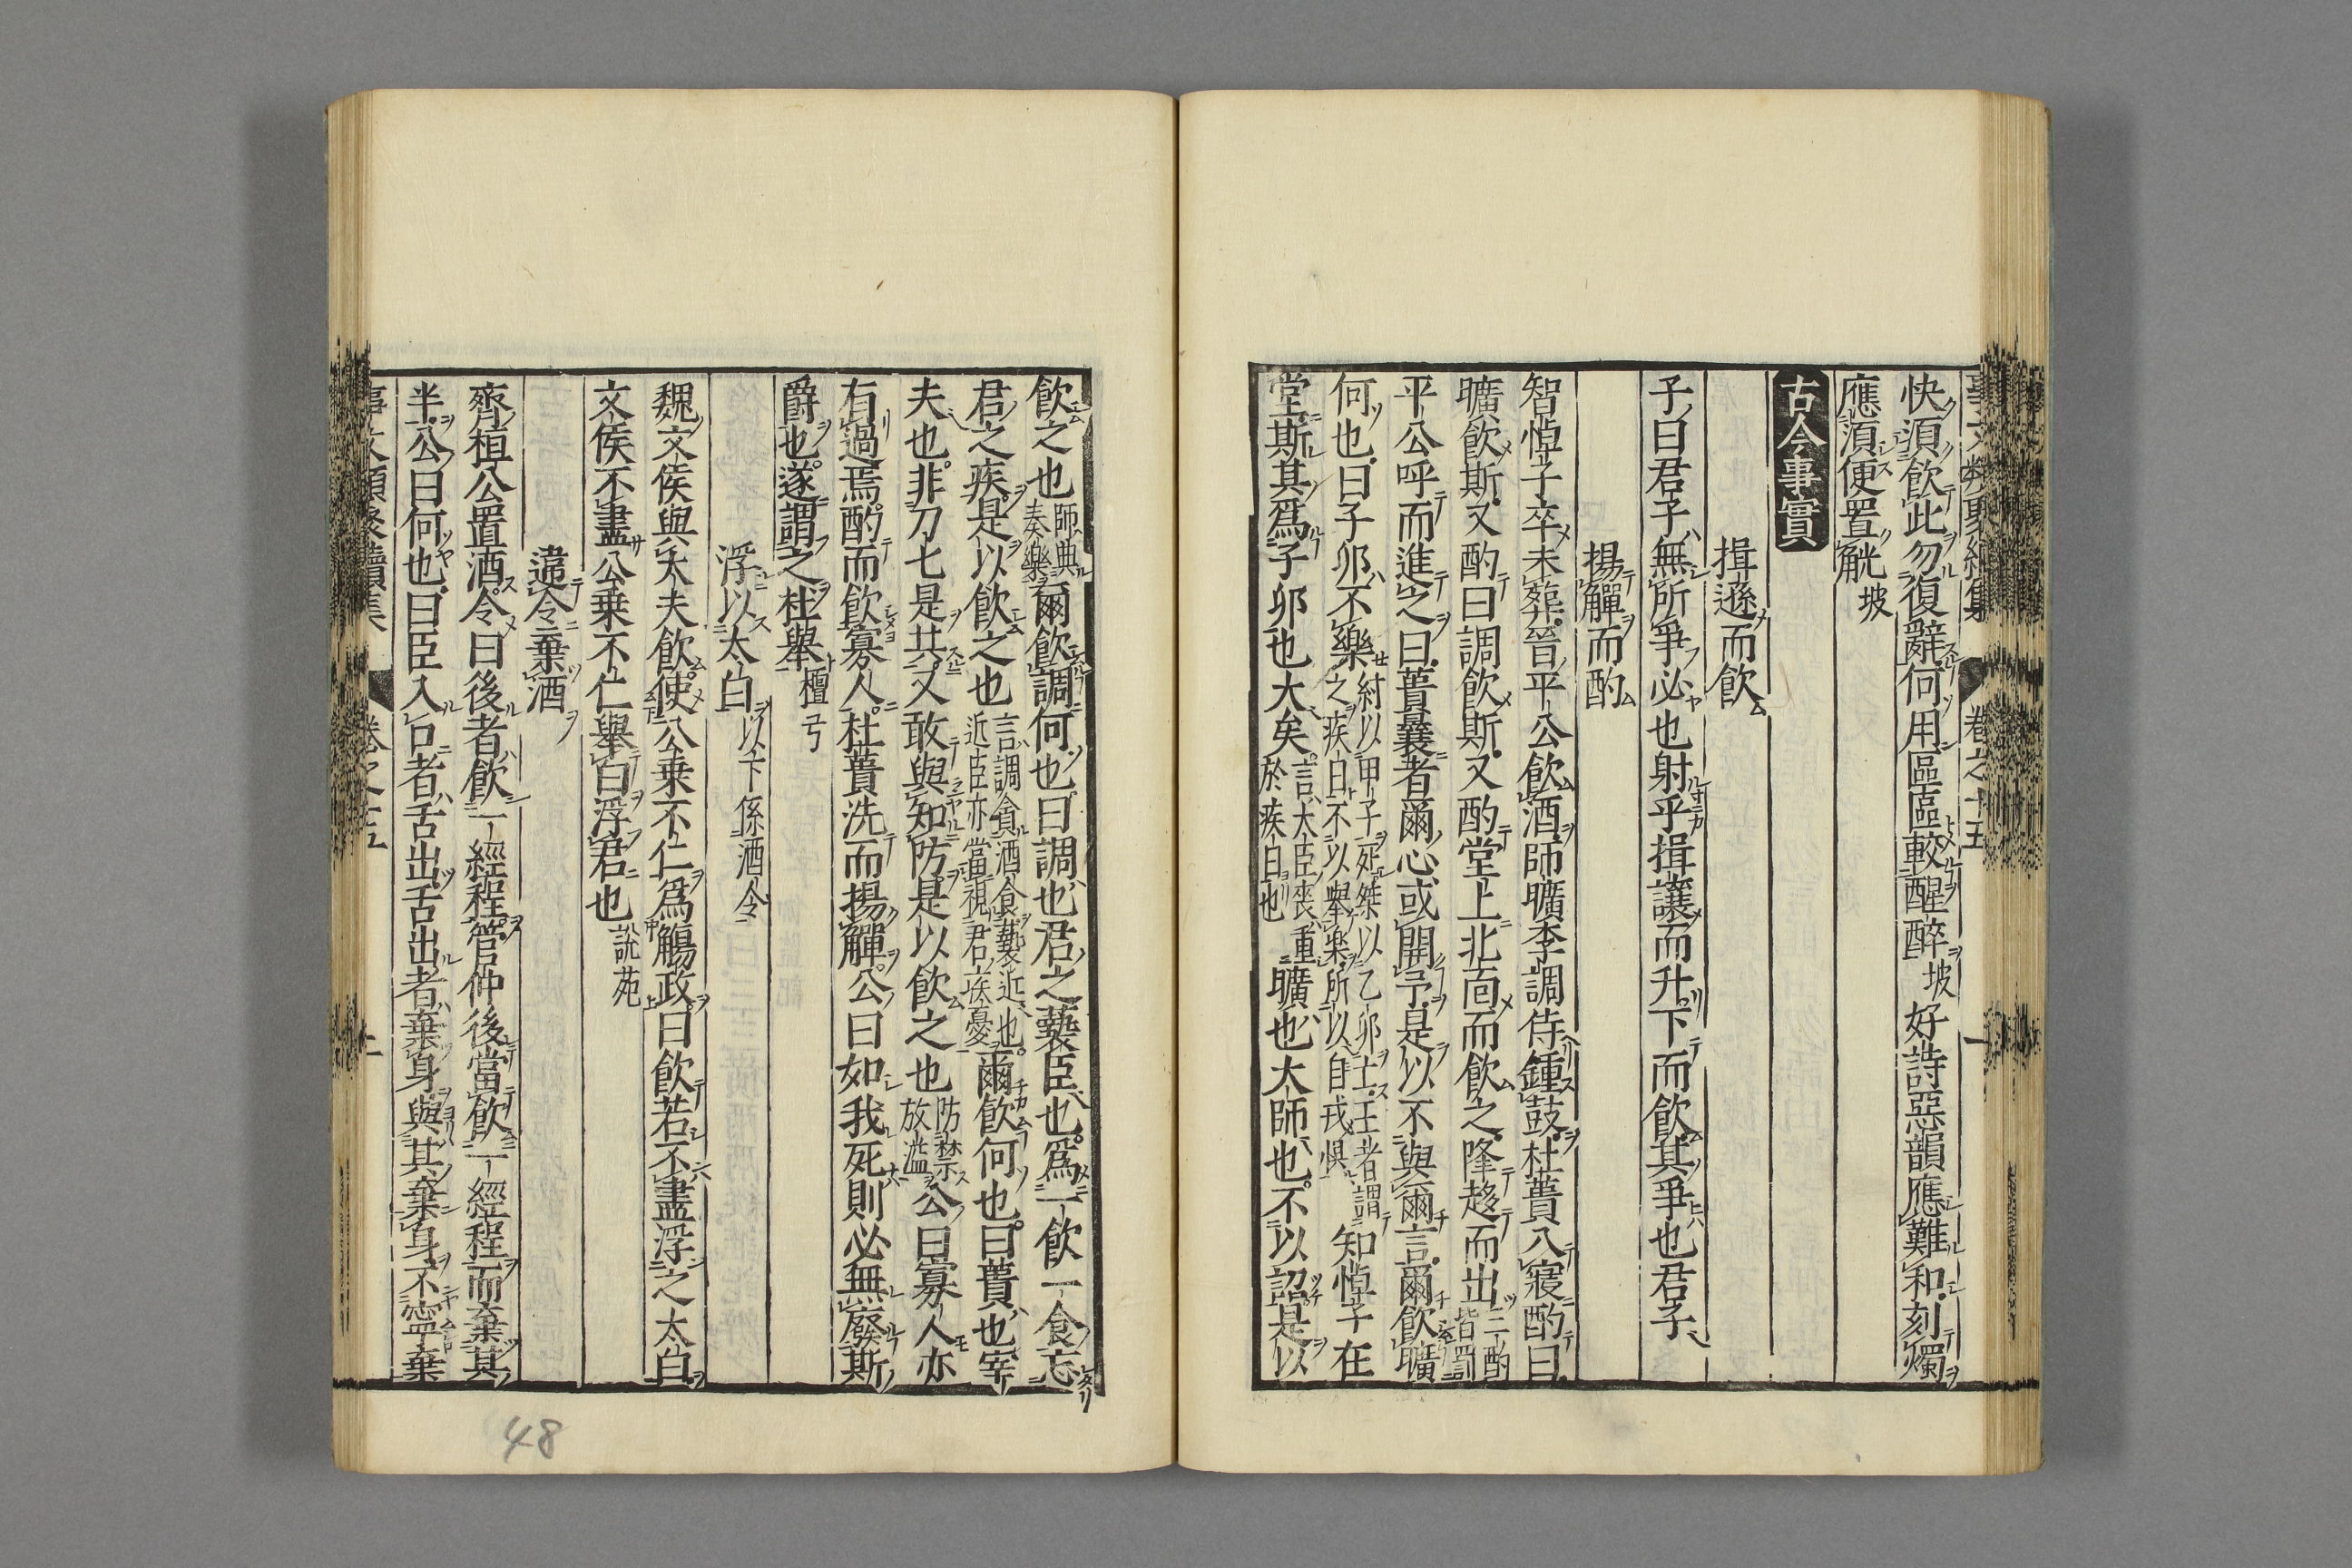 事文類聚續集 卷之十五 一
快須飲此勿復辭何用區區較醒醉坡 好詩惡韻應難和刻燭
應須便置觥坡
古今事實
揖遜而飲
子曰君子無所爭必也射乎揖讓而升下而飲其爭也君子
揚觶而酌
智悼子卒未葬晉平公飲酒師曠李調侍鍾鼓杜蕢入寢酌曰
曠飲斯又酌曰調飲斯又酌堂上北面而飲之降趍而出三酌皆罰
平公呼而進之曰蕢曩者爾心或開予是以不與爾言爾飲曠
何也曰子卯不樂紂以甲子死桀以乙卯亡王者謂之疾日不以舉樂所以自戒惧知悼子在
堂斯其爲子卯也大矣言大臣喪重於疾日也曠也大師也不以詔是以
飲之也師典奏樂爾飲調何也曰調也君之褻臣也爲一飲一食忘
君之疾是以飲之也言調貪酒食褻近也近臣亦當視君疾憂爾飲何也曰蕢也宰
夫也非刀匕是共又敢與知防是以飲之也防禁放溢公曰寡人亦
有過焉酌而飲寡人杜蕢洗而揚觶公曰如我死則必無廢斯
爵也遂謂之杜舉檀弓
浮以太白以下係酒令
魏文侯與大夫飲使公乗不仁爲觴政曰飲若不盡浮之太白
文侯不盡公乗不仁舉白浮君也說苑
違令棄酒
齊桓公置酒令曰後者飲一經程管仲後當飲一經程而棄其
半公曰何也曰臣入口者舌出舌出者棄身與其棄身不寧棄
事文類聚續集 卷之十五 二
48